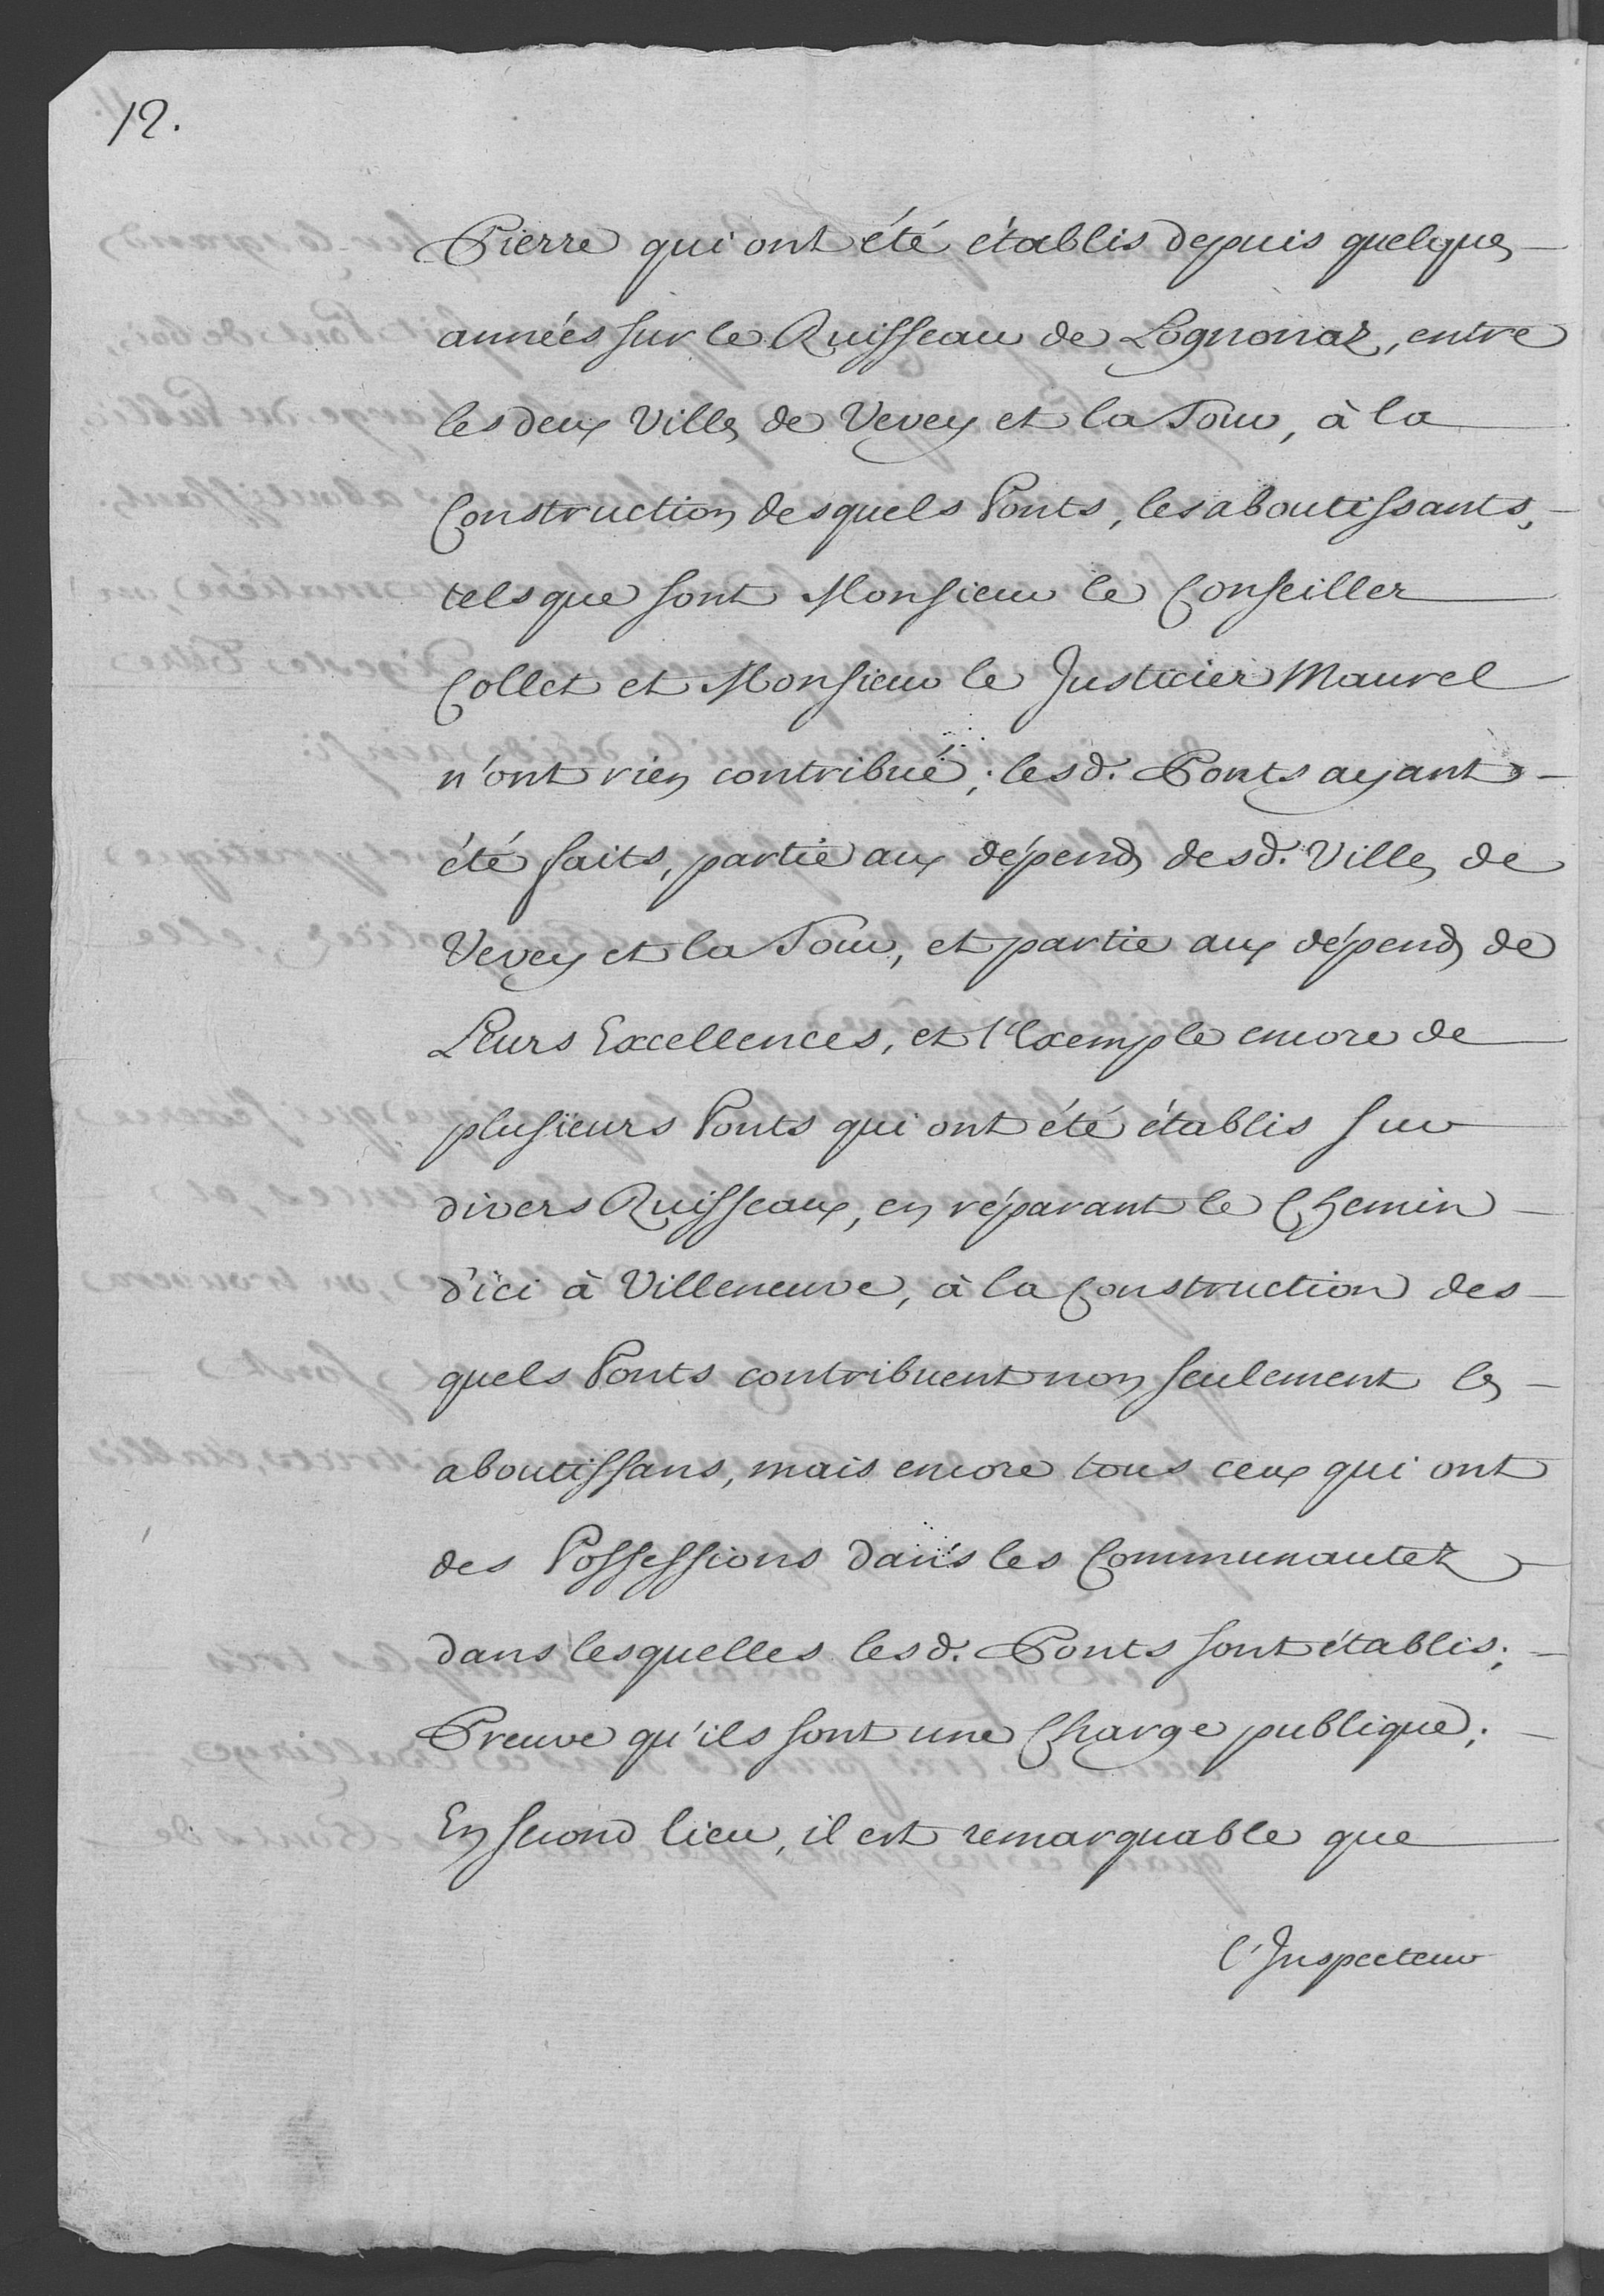 12.
Pierre qui ont été établis depuis quelques
années sur le Ruisseau de Lognonaz, entre
les deux Villes de Vevey et la Tour, à la
Construction desquels Ponts, les aboutissants,
tels que sont Monsieur le Conseiller
Collet et Monsieur le Justicier Maurel
n'ont rien contribué; lesd. Ponts ayant
été faits, partie aux dépends desd. Villes de
Vevey et la Tour, et partie aux dépends de
Leurs Excellences, et l'Exemple encore de
plusieurs Ponts qui ont été établis sur
divers Ruisseaux, en réparant le Chemin
d'ici à Villeneuve, à la Construction des-
quels Ponts contribuent non seulement les
aboutissans, mais encore tous ceux qui ont
des Possessions dans les Communautez
dans lesquelles lesd. Ponts sont établis;
Preuve qu'ils sont une Charge publique;
En second lieu, il est remarquable que
l'Inspecteur